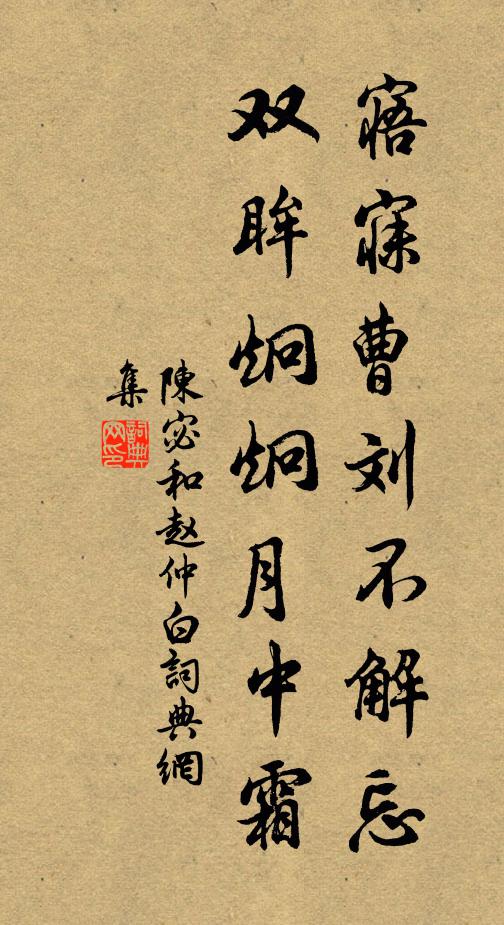 寤寐曹刘不解忘
双眸炯炯月中霜
陳宓和赵仲白詞典網
集
詞典網印